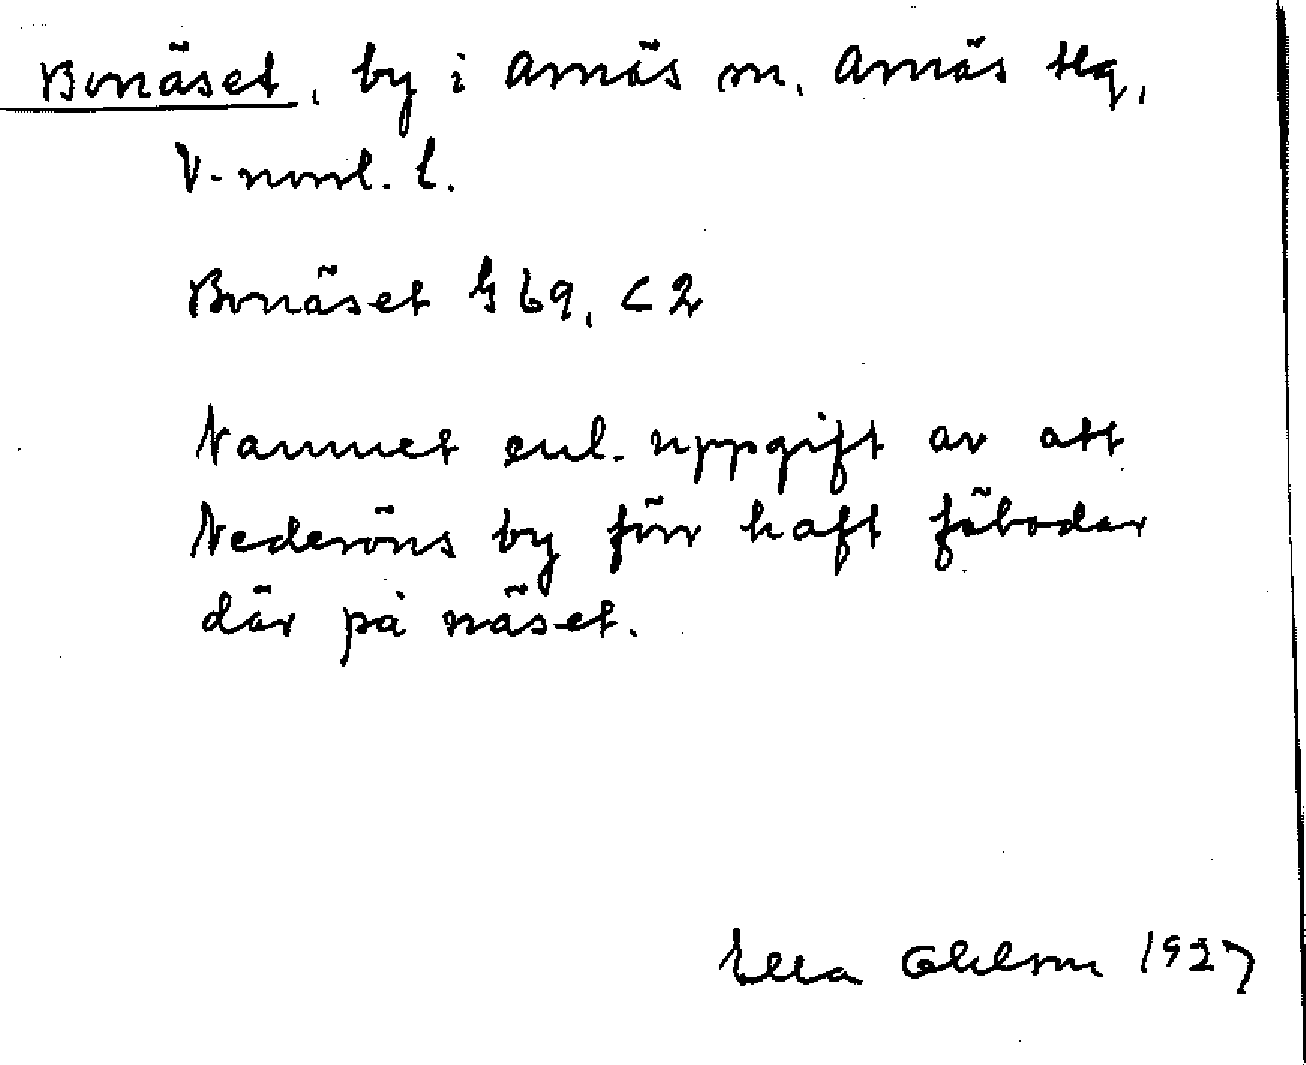 Bonäset, by i Arnäs sn, Arnäs tlg,
V-norrl. l.
Bonäset G 69, C 2
Namnet enl. uppgift av att
Nederöns by förr haft fäbodar
där på näset.
Ella Ohlson 1927